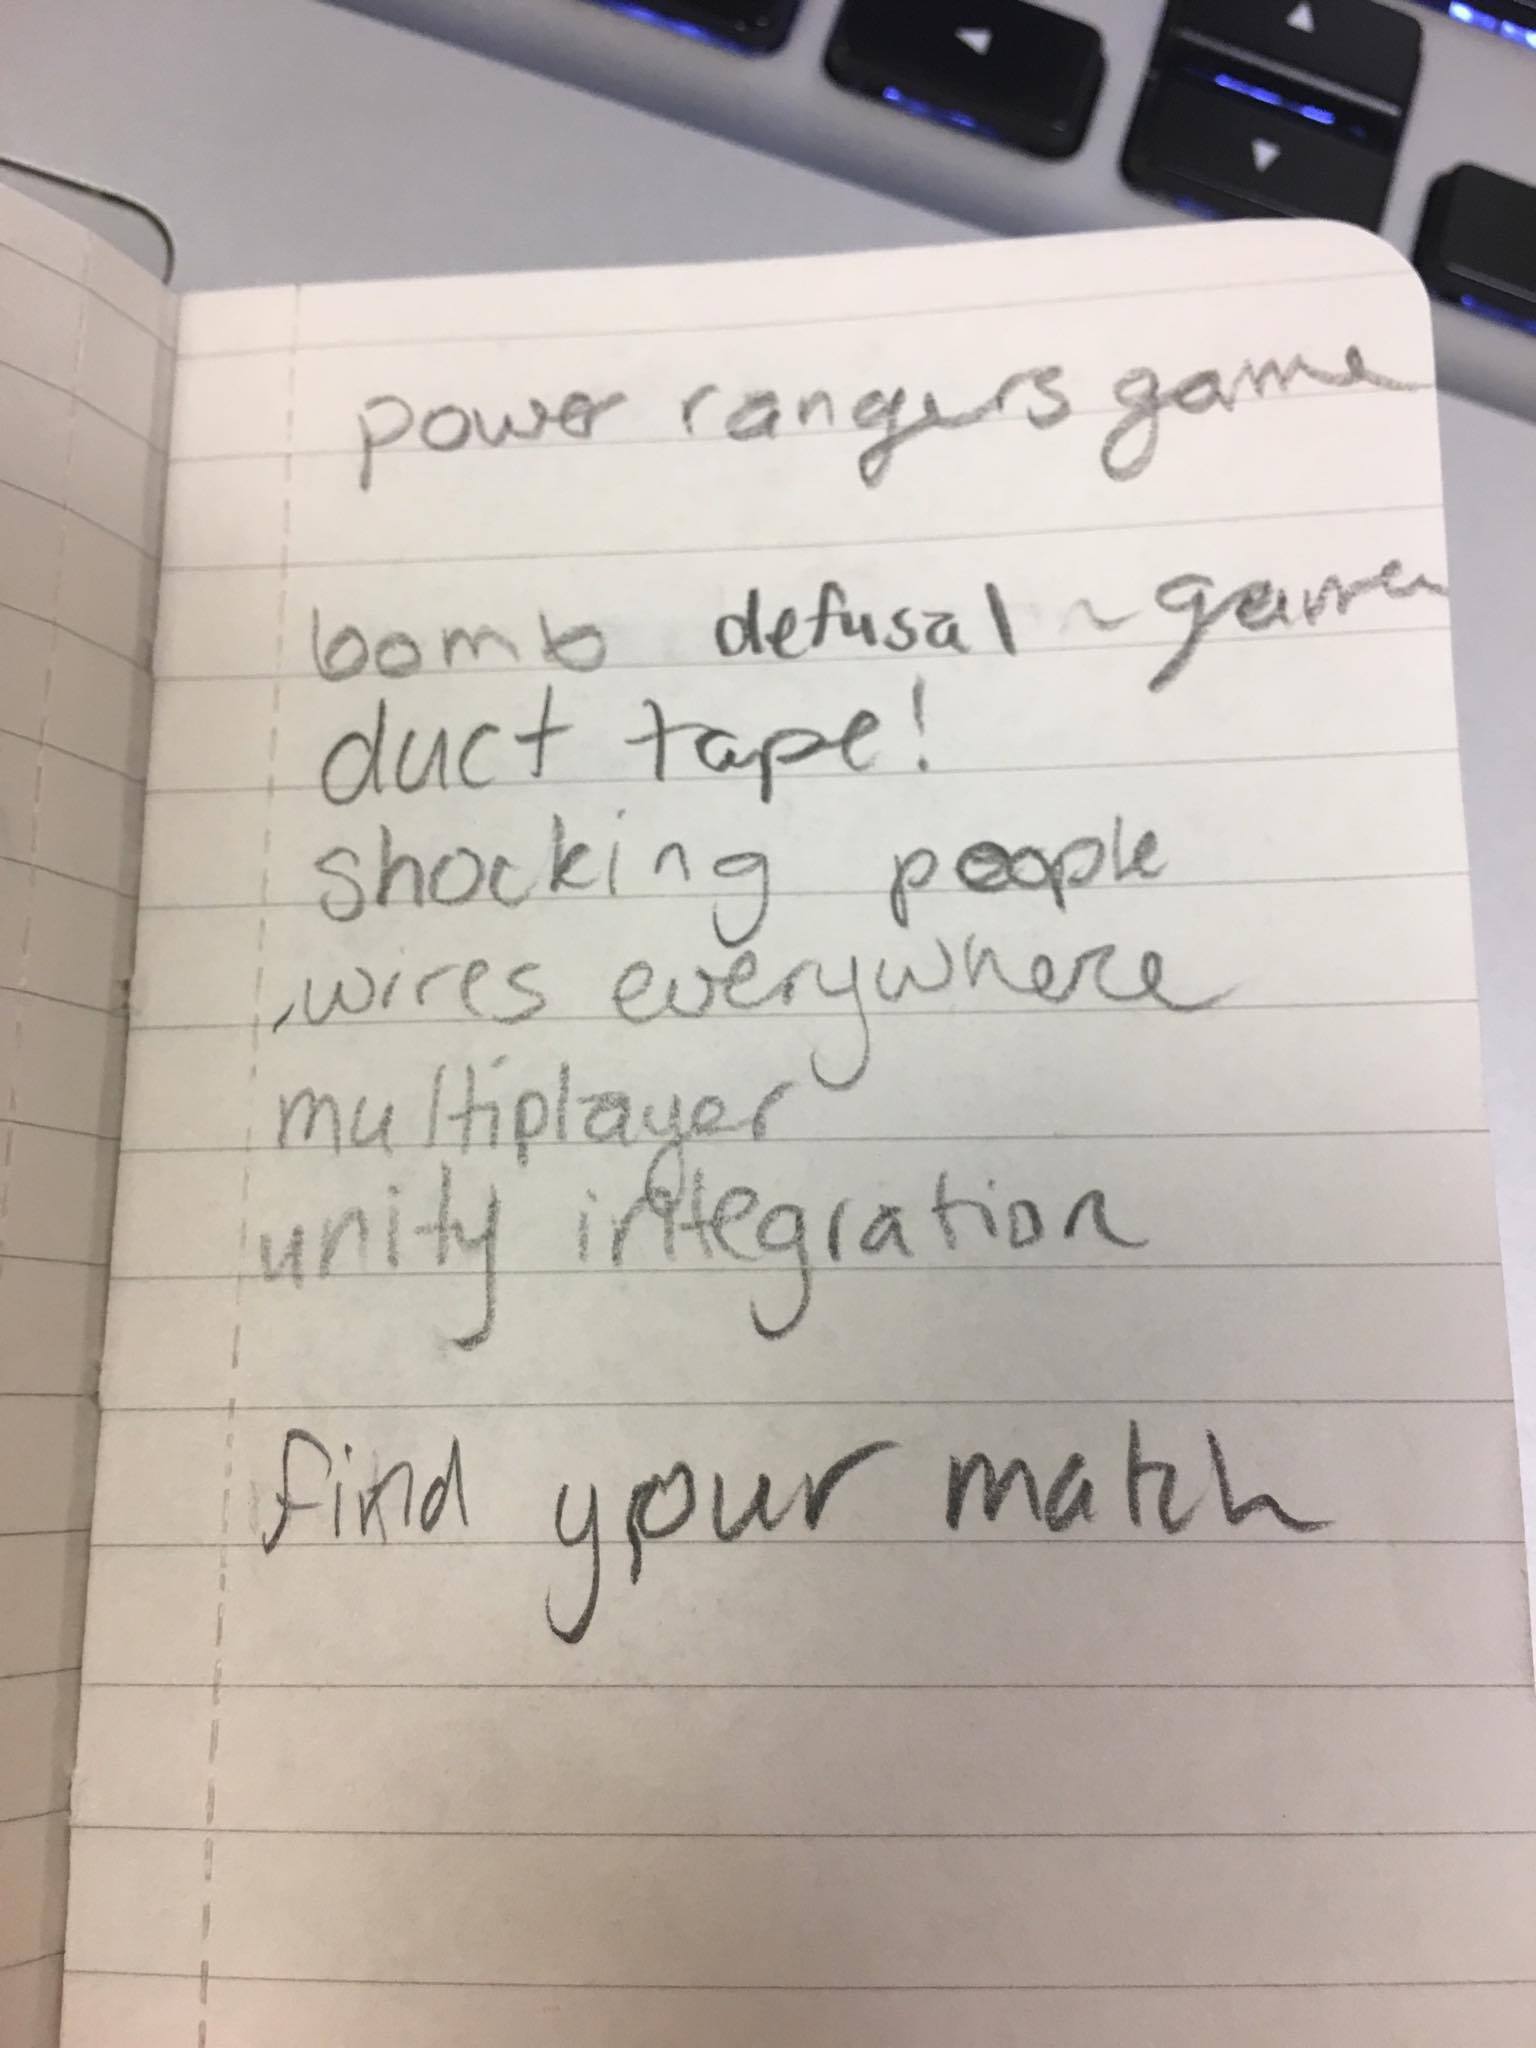 power rangers game
bomb defusal ~ game
duct tape!
shocking people
wires everywhere
multiplayer
unity integration
find your match